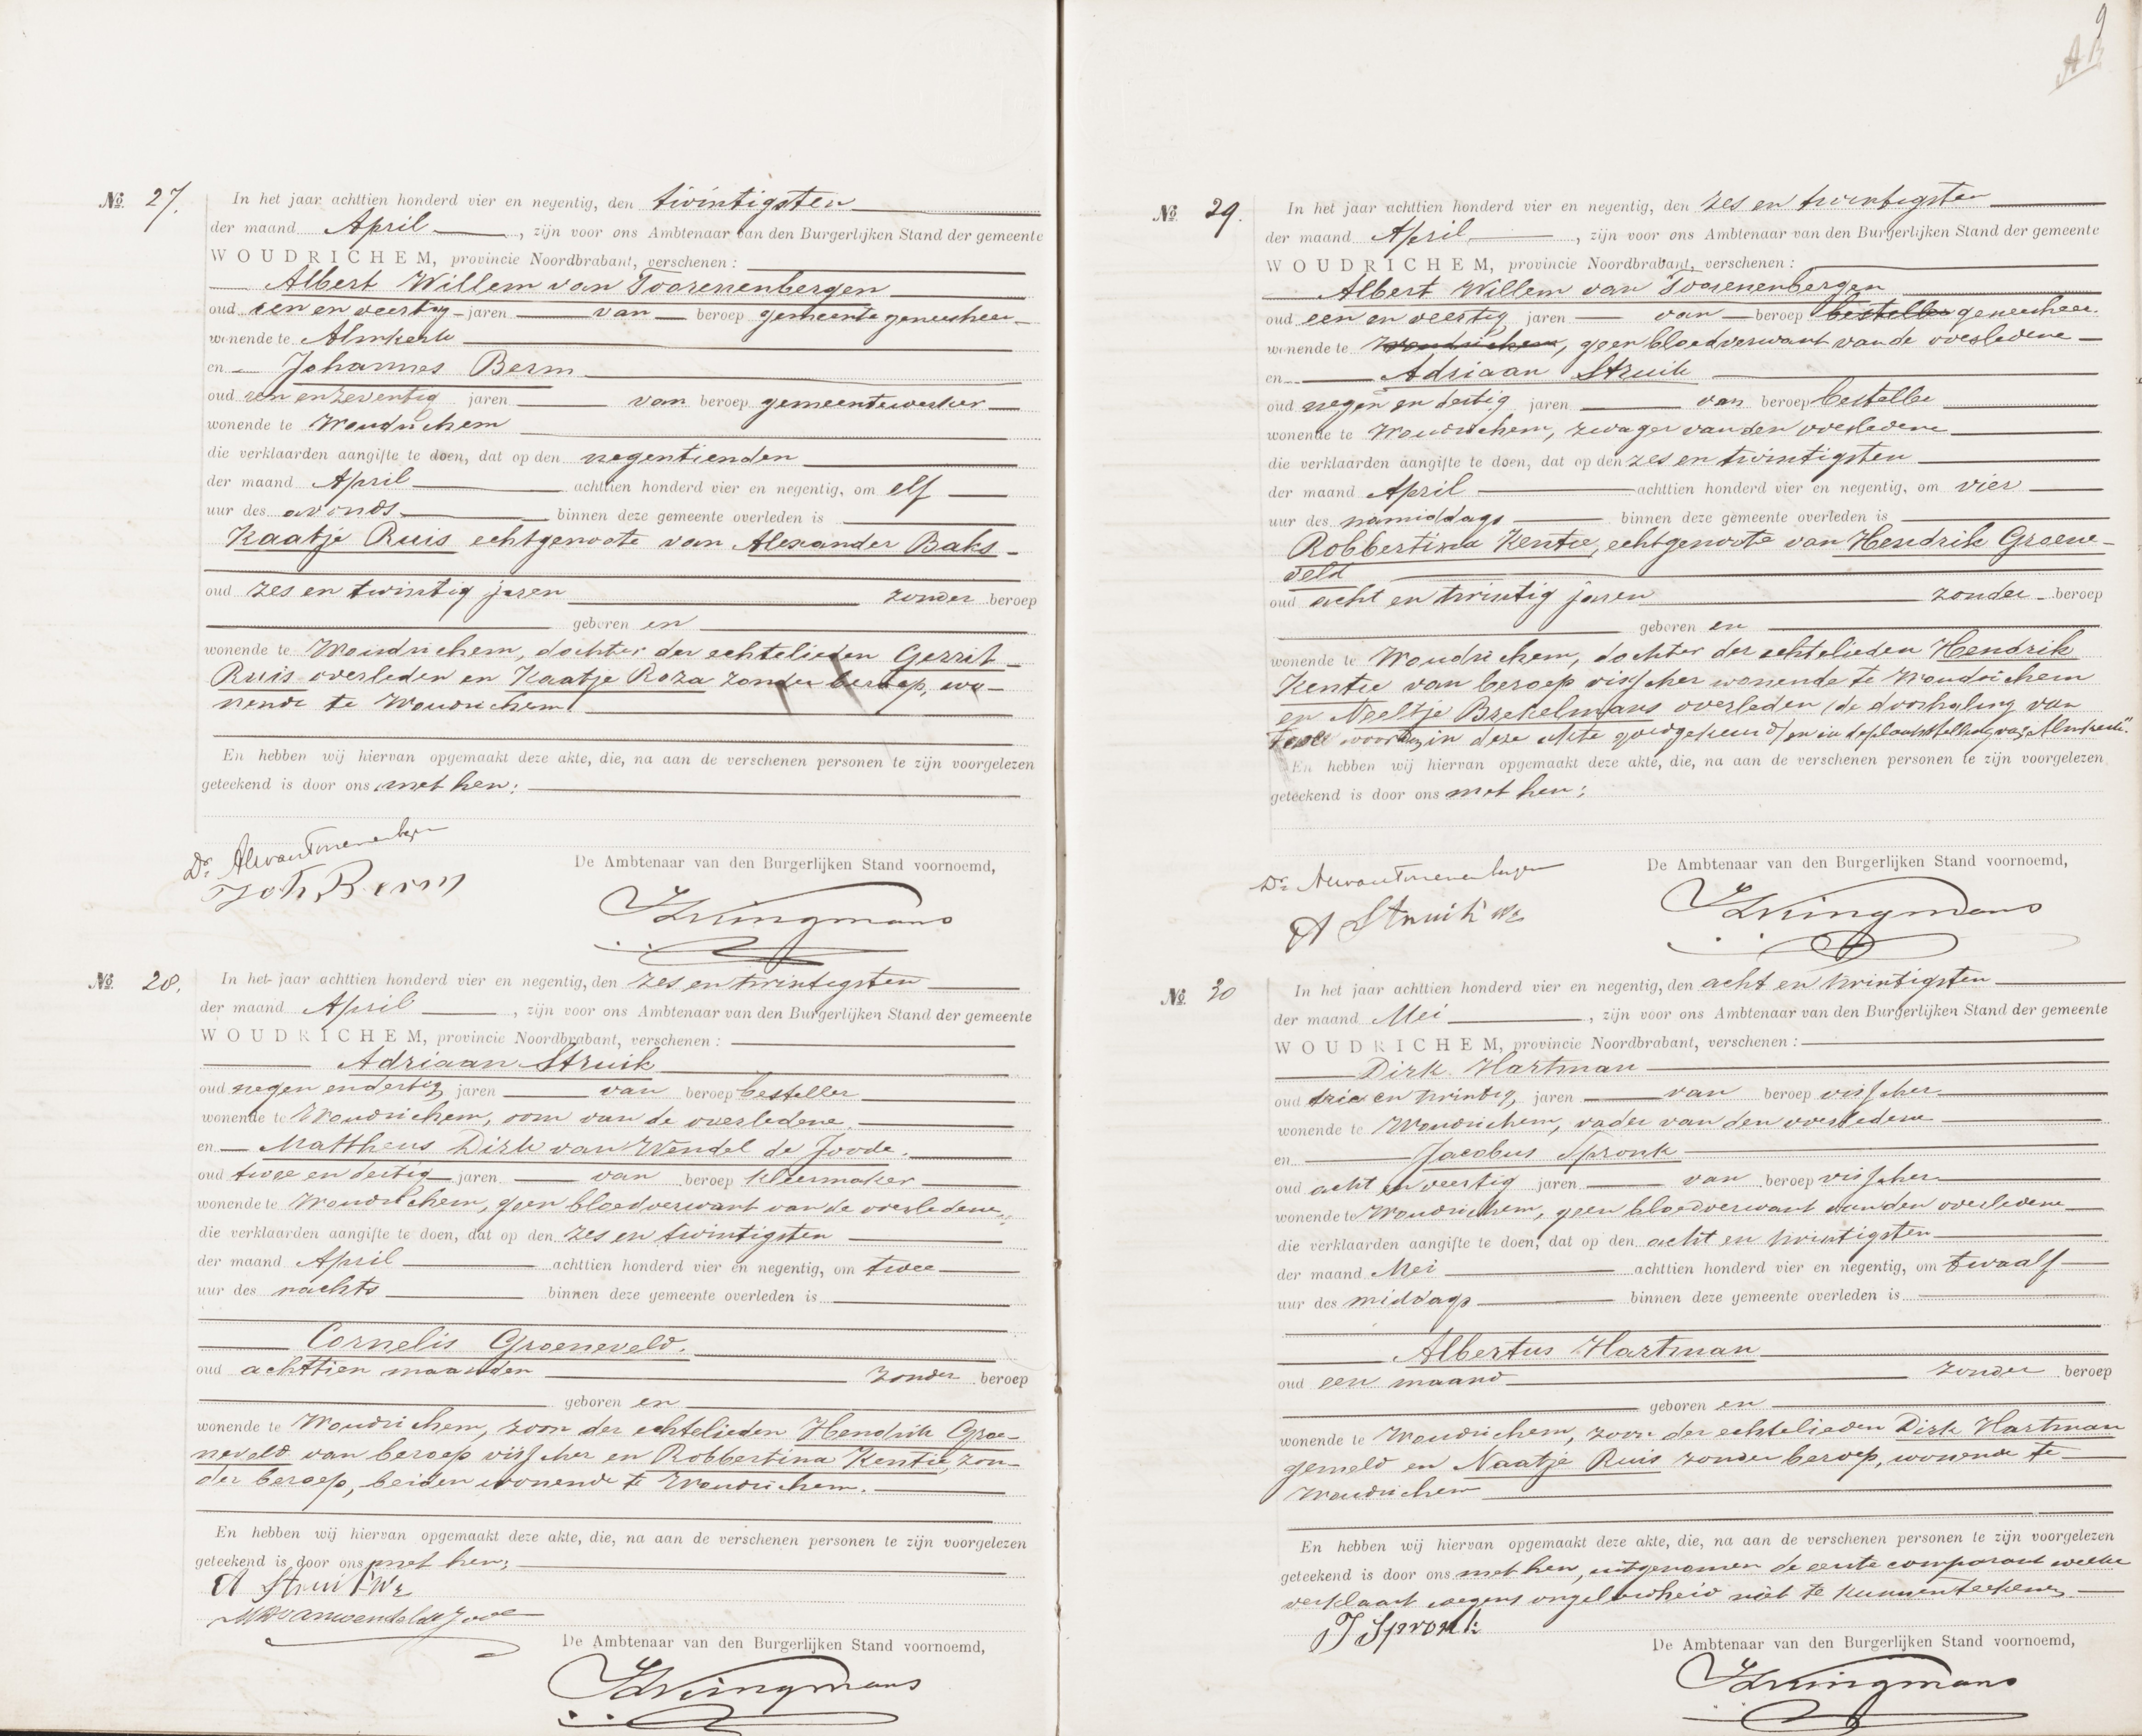 No. 27.
In het jaar achttien honderd vier en negentig, den twintigsten
der maand April, zijn voor ons Ambtenaar van den Burgerlijken Stand der gemeente
WOUDRICHEM, provincie Noordbrabant, verschenen:
Albert Willem van Toorenenbergen
oud een en veertig jaren van beroep gemeente geneesheer
wonende te Almkerk
en Johannes Berm
oud een en zeventig jaren van beroep gemeentewerker
wonende te Woudrichem
die verklaarden aangifte te doen, dat op den negentienden
der maand April achttien honderd vier en negentig, om elf
uur des avonds binnen deze gemeente overleden is
Kaatje Ruis echtgenoote van Alexander Baks
oud zes en twintig jaren zonder beroep
geboren en
wonende te Woudrichem, dochter der echtelieden Gerrit
Ruis overleden en Kaatje Roza zonder beroep, wo-
nende te Woudrichem.
En hebben wij hiervan opgemaakt deze akte, die, na aan de verschenen personen te zijn voorgelezen
geteekend is door ons met hen:
Dr. AWvanToorenenbergen
Joh Berm
De Ambtenaar van den Burgerlijken Stand voornoemd,
No. 28.
In het jaar achttien honderd vier en negentig, den zes en twintigsten
der maand April, zijn voor ons Ambtenaar van den Burgerlijken Stand der gemeente
WOUDRICHEM, provincie Noordbrabant, verschenen:
Adriaan Struik
oud negen en dertig jaren van beroep besteller
wonende te Woudrichem, oom van de overledene
en Mattheus Dirk van Wendel de Joode.
oud twee en dertig jaren van beroep kleermaker
wonende te Woudrichem, geen bloedverwant van de overledene,
die verklaarden aangifte te doen, dat op den zes en twintigsten
der maand April achttien honderd vier en negentig, om twee
uur des nachts binnen deze gemeente overleden is
Cornelis Groeneveld.
oud achttien maanden zonder beroep
geboren en
wonende te Woudrichem, zoon der echtelieden Hendrik Groe-
neveld van beroep visscher en Robbertina Kentie, zon-
der beroep, beiden wonend te Woudrichem.
En hebben wij hiervan opgemaakt deze akte, die, na aan de verschenen personen te zijn voorgelezen
geteekend is door ons met hen;
A Struik Wz
MDvanwendeldeJoode
De Ambtenaar van den Burgerlijken Stand voornoemd,
9
No. 29.
In het jaar achttien honderd vier en negentig, den zes en twintigsten
der maand April, zijn voor ons Ambtenaar van den Burgerlijken Stand der gemeente
WOUDRICHEM, provincie Noordbrabant, verschenen:
Albert Willem van Toorenenbergen
oud een en veertig jaren van beroep besteller geneesheer
wonende te Woudrichem, geen bloedverwant van de overledene
en Adriaan Struik
oud negen en dertig jaren van beroep besteller
wonende te Woudrichem, zwager van den overledene
die verklaarden aangifte te doen, dat op den zes en twintigsten
der maand April achttien honderd vier en negentig, om vier
uur des namiddags binnen deze gemeente overleden is
Robbertina Kentie, echtgenoote van Hendrik Groene-
veld
oud acht en twintig jaren zonder beroep
geboren en
wonende te Woudrichem, dochter der echtelieden Hendrik
Kentie van beroep visscher wonende te Woudrichem
en Neeltje Brekelmans overleden (de doorhaling van
twee woorden in deze akte goedgekeurd) en in de plaatsstelling van "Almkerk".
En hebben wij hiervan opgemaakt deze akte, die, na aan de verschenen personen te zijn voorgelezen
geteekend is door ons met hen;
Dr AWvanToorenenbergen
A Struik Wz
De Ambtenaar van den Burgerlijken Stand voornoemd,
No. 30
In het jaar achttien honderd vier en negentig, den acht en twintigsten
der maand Mei, zijn voor ons Ambtenaar van den Burgerlijken Stand der gemeente
WOUDRICHEM, provincie Noordbrabant, verschenen:
Dirk Hartman
oud drie en twintig jaren van beroep visscher
wonende te Woudrichem, vader van den overledene
en Jacobus Spronk
oud acht en veertig jaren van beroep visscher
wonende te Woudrichem, geen bloedverwant van den overledene
die verklaarden aangifte te doen, dat op den acht en twintigsten
der maand Mei achttien honderd vier en negentig, om twaalf
uur des middags binnen deze gemeente overleden is
Albertus Hartman
oud een maand zonder beroep
geboren en
wonende te Woudrichem, zoon der echtelieden Dirk Hartman
gemeld en Naatje Ruis zonder beroep, wonende te
Woudrichem
En hebben wij hiervan opgemaakt deze akte, die, na aan de verschenen personen te zijn voorgelezen
geteekend is door ons met hen, uitgenomen de eerste comparant welke
verklaart wegens ongeleerdheid niet te kunnen teekenen
J Spronk
De Ambtenaar van den Burgerlijken Stand voornoemd,